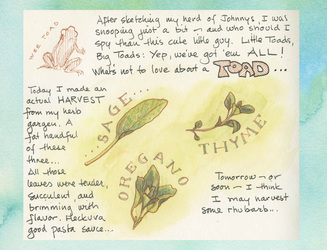 WEE TOAD
After sketching my herd of Johnnys, I was
snooping just a bit - and who should I
spy than this cute little guy. Little Toads,
Big Toads: Yep, we've got 'em ALL!
Whats not to love about a TOAD...
Today I made an
actual HARVEST
from my herb
garden. A
fat handful
of these
three...
All those
leaves were tender,
succulent, and
brimming with
flavor. Heckuva
good pasta sauce...
...SAGE...
THYME
OREGANO
Tomorrow - or
soon - I think
I may harvest
some rhubarb...